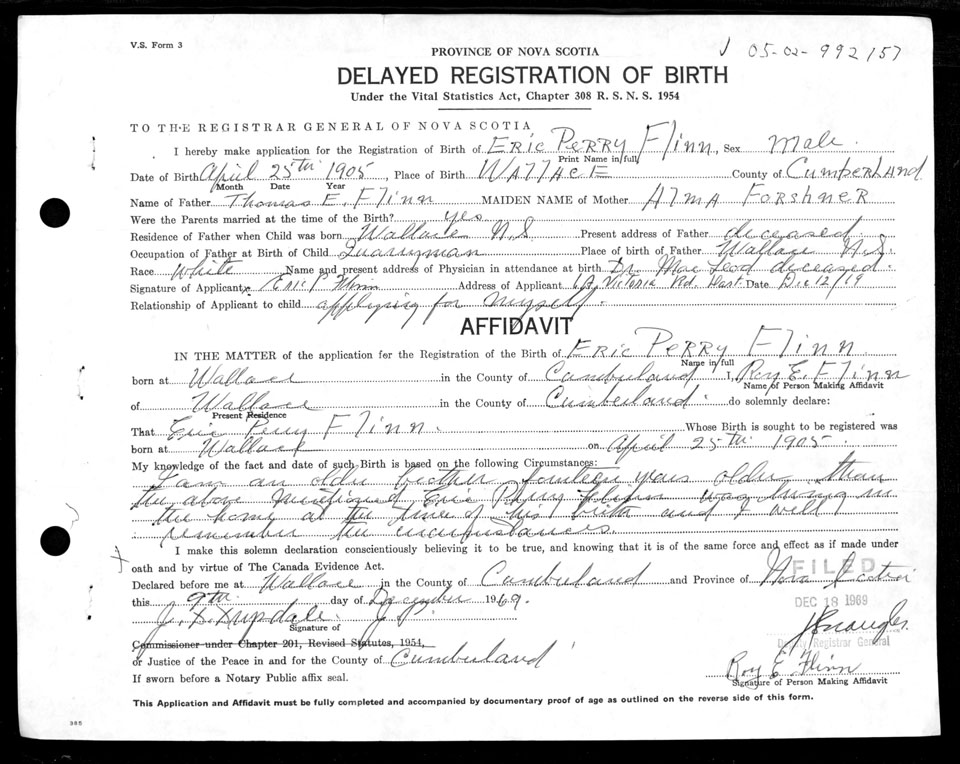 V.S. Form 3
PROVINCE OF NOVA SCOTIA
√ 05-02-992157
DELAYED REGISTRATION OF BIRTH
Under the Vital Statistics Act, Chapter 308 R. S. N. S. 1954
TO THE REGISTRAR GENERAL OF NOVA SCOTIA
I hereby make application for the Registration of Birth of Eric Perry Flinn, Sex Male.
Print Name in full
Date of Birth April 25th 1905, Place of Birth Wallace County of Cumberland
Month Date Year
Name of Father Thomas E. Flinn MAIDEN NAME of Mother Alma Forshner
Were the Parents married at the time of the Birth? yes
Residence of Father when Child was born Wallace N.S Present address of Father deceased.
Occupation of Father at Birth of Child Quarryman Place of birth of Father Wallace N.S.
Race White Name and present address of Physician in attendance at birth Dr. Mac Leod deceased.
Signature of Applicant x Eric P Flinn Address of Applicant Victoria Rd. Dart. Date Dec 12/19
Relationship of Applicant to child applying for myself.
AFFIDAVIT
IN THE MATTER of the application for the Registration of the Birth of Eric Perry Flinn
Name in full
born at Wallace in the County of Cumberland I, Roy E. Flinn
Name of Person Making Affidavit
of Wallace in the County of Cumberland. do solemnly declare:
Present Residence
That Eric Perry Flinn. Whose Birth is sought to be registered was
born at Wallace on April 25th 1905.
My knowledge of the fact and date of such Birth is based on the following Circumstances:
I am an older brother fourteen years older than
the above mentioned Eric Perry Flinn was living in
the home at the time of his birth and I well
remember the circumstances.
I make this solemn declaration conscientiously believing it to be true, and knowing that it is of the same force and effect as if made under
oath and by virtue of The Canada Evidence Act.
FILED
Declared before me at Wallace in the County of Cumberland and Province of Nova Scotia
this 9th day of December 1969.
DEC 18 1969
Signature of
Commissioner under Chapter 201, Revised Statutes, 1954,
Deputy Registrar General
or Justice of the Peace in and for the County of Cumberland
Roy E. Flinn
If sworn before a Notary Public affix seal.
Signature of Person Making Affidavit
This Application and Affidavit must be fully completed and accompanied by documentary proof of age as outlined on the reverse side of this form.
385